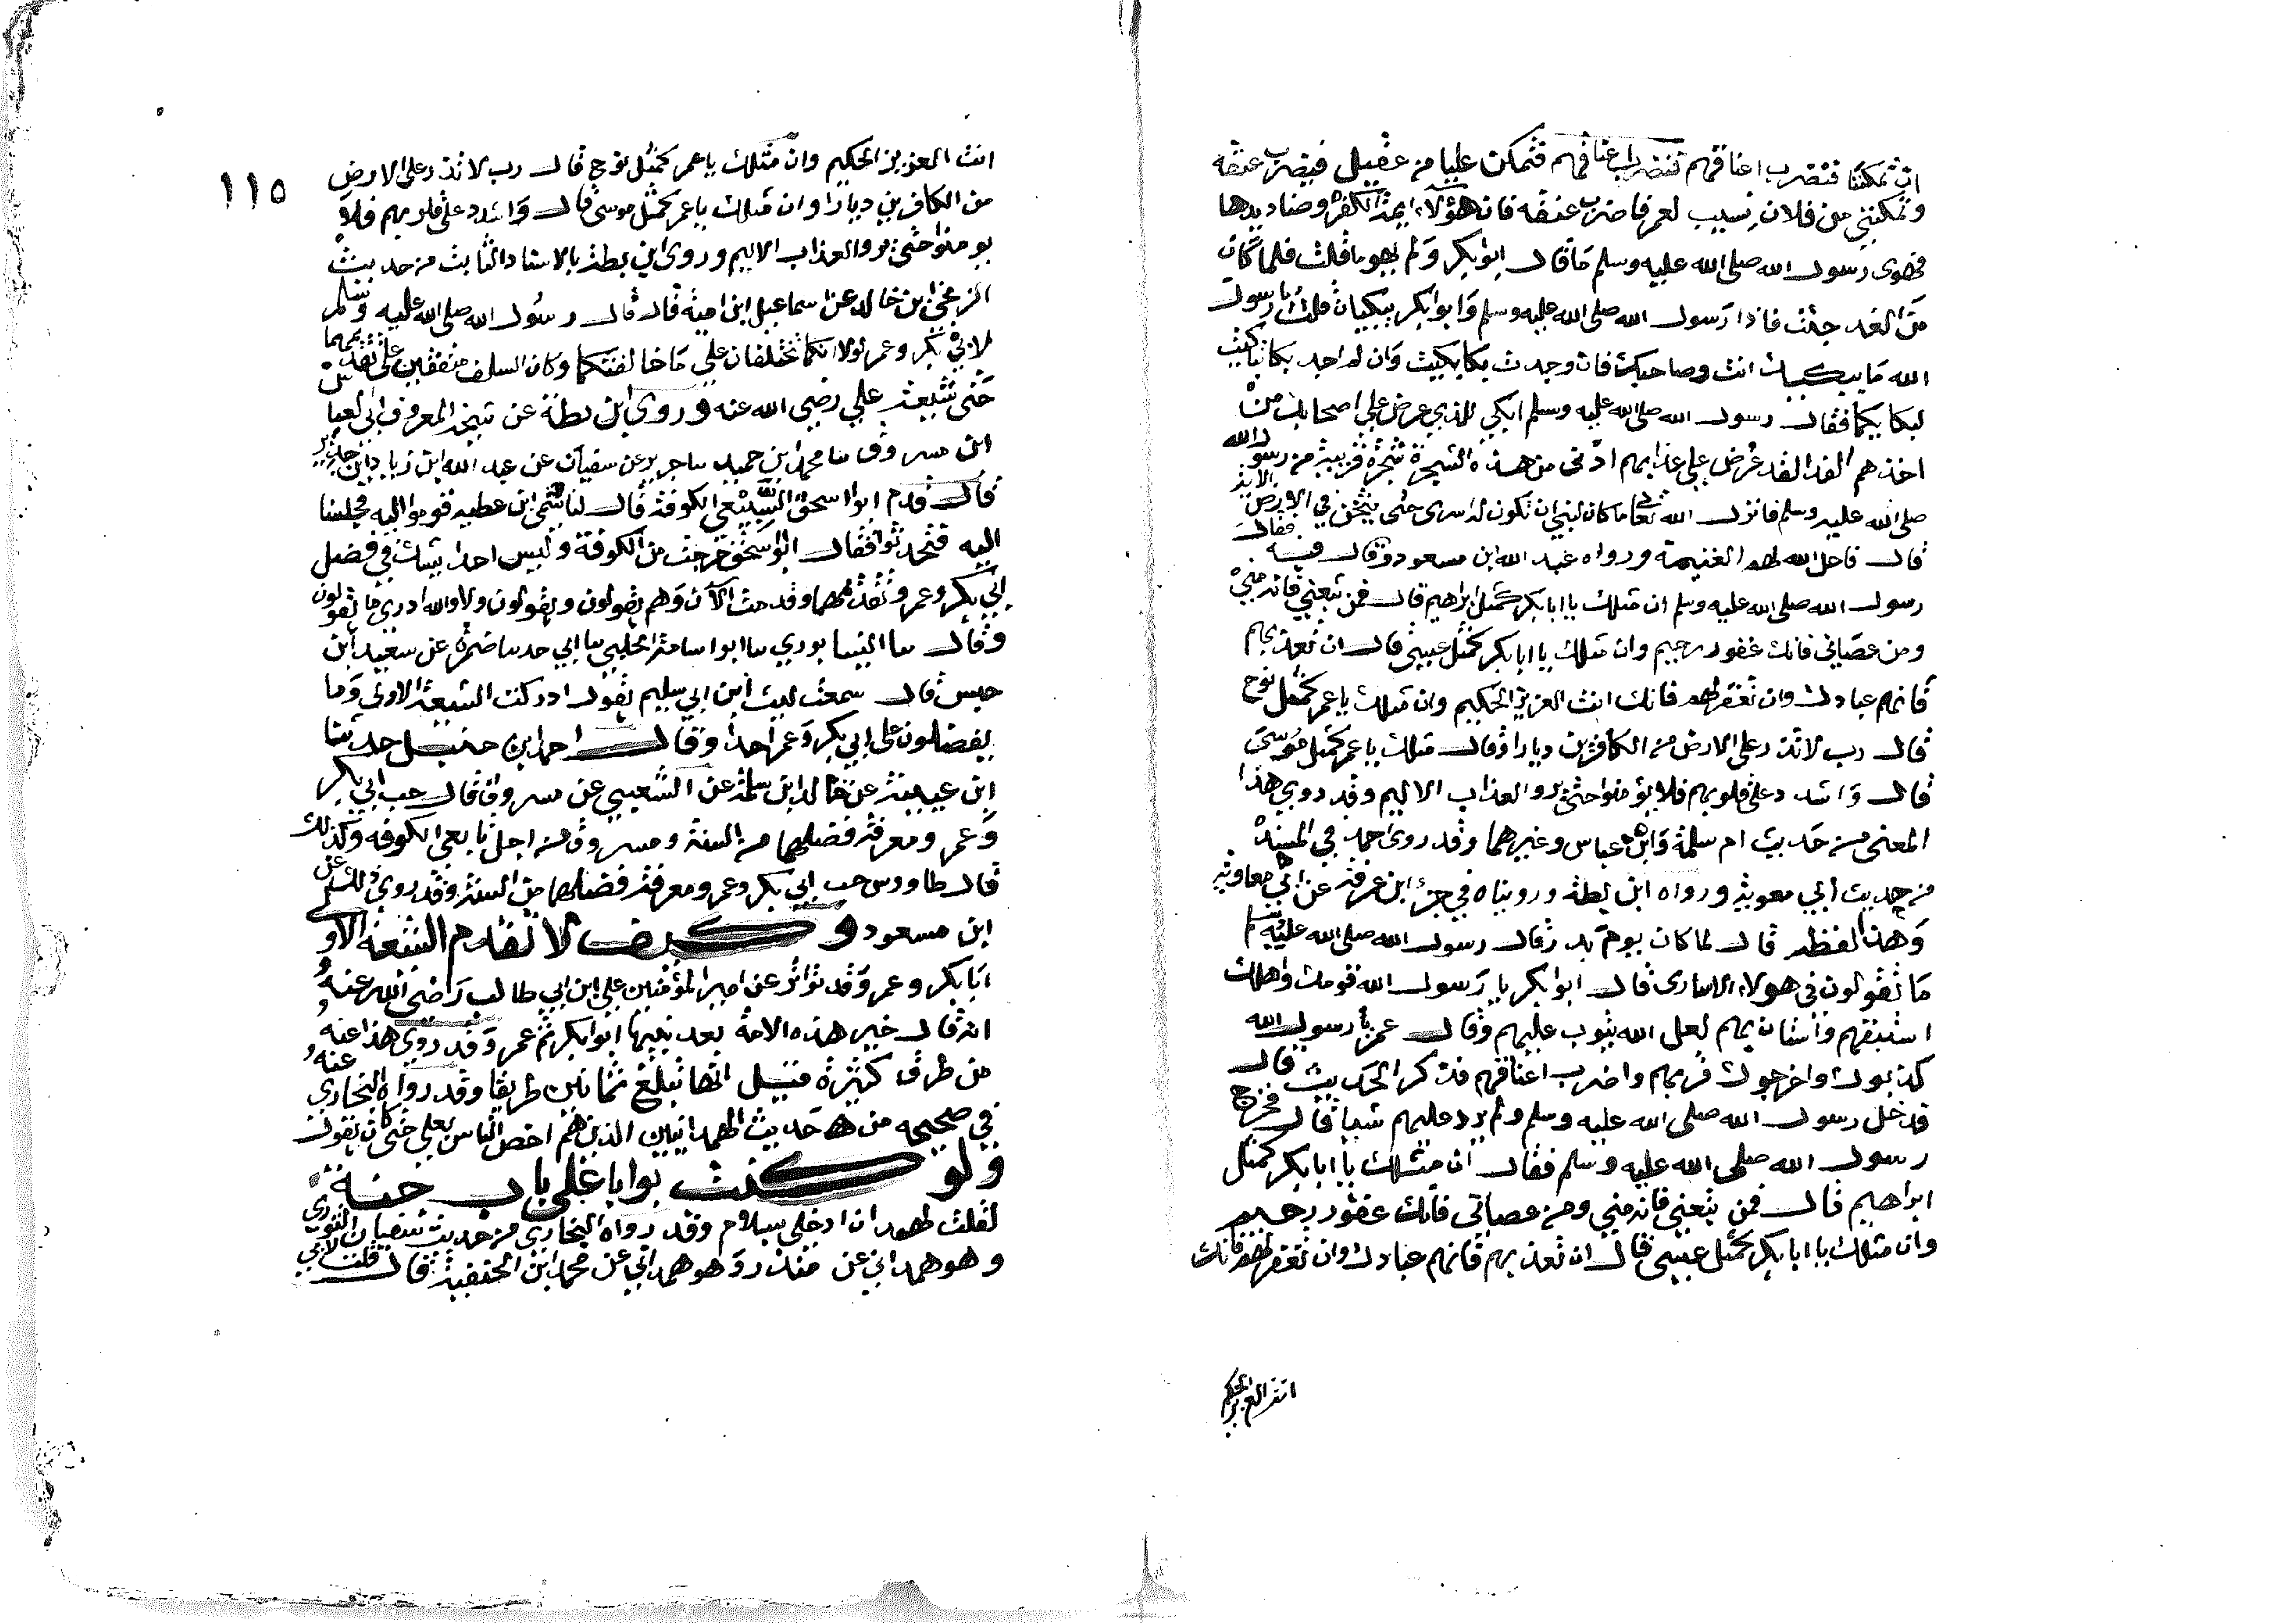 ان تمكننا فتضرب اعناقهم فنضرب اعناقهم فتمكن عليا من عقيل فيضرب عنقه
وتمكنني من فلان نسيب لعمر فاضرب عنقه فان هؤلاء ايمة الكفر وصناديدها
فهوى رسول الله صلى الله عليه وسلم ما قال ابو بكر ولم يهو ما قلت فلما كان
من الغد جئت فاذا رسول الله صلى الله عليه وسلم وابو بكر يبكيان قلت يا رسول
الله ما يبكيك انت وصاحبك فان وجدت بكا بكيت وان لم اجد بكا تباكيت
لبكايكما فقال رسول الله صلى الله عليه وسلم ابكي للذي عرض علي اصحابك من
اخذهم الفدا لقد عرض علي عذابهم ادنى من هذه الشجرة شجرة قريبة من رسول الله
صلى الله عليه وسلم فانزل الله تعالى ما كان لنبي ان تكون له اسرى حتى يثخن في الارض الاية
قال فاحل الله لهم الغنيمة ورواه عبد الله ابن مسعود وقال فيه فقال
رسول الله صلى الله عليه وسلم ان مثلك يا ابا بكر كمثل ابراهيم قال فمن تبعني فانه مني
ومن عصاني فانك غفور رحيم وان مثلك يا ابا بكر كمثل عيسى قال ان تعذبهم
فانهم عبادك وان تغفر لهم فانك انت العزيز الحكيم وان مثلك يا عمر كمثل نوح
قال رب لا تذر على الارض من الكافرين ديارا وقال مثلك يا عمر كمثل موسى
قال واشدد على قلوبهم فلا يؤمنوا حتى يروا العذاب الاليم وقد روي هذا
المعنى من حديث ام سلمة وابن عباس وغيرهما وقد روى احمد في المسند
من حديث ابي معوية ورواه ابن بطة ورويناه في جزء ابن عرفة عن ابي معاوية
وهذا لفظه قال لما كان يوم بدر قال رسول الله صلى الله عليه وسلم
ما تقولون في هولاء الاسارى قال ابو بكر يا رسول الله قومك واهلك
استبقهم واستان بهم لعل الله يتوب عليهم وقال عمر يا رسول الله
كذبوك واخرجوك قربهم واضرب اعناقهم فذكر الحديث قال
فدخل رسول الله صلى الله عليه وسلم ولم يرد عليهم شيا قال فخرج
رسول الله صلى الله عليه وسلم فقال ان مثلك يا ابا بكر كمثل
ابراهيم قال فمن تبعني فانه مني ومن عصاني فانك غفور رحيم
وان مثلك يا ابا بكر كمثل عيسى قال ان تعذبهم فانهم عبادك وان تغفر لهم فانك
انت العزيز الحكيم
١١٥
انت العزيز الحكيم وان مثلك يا عمر كمثل نوح قال رب لا تذر على الارض
من الكافرين ديارا وان مثلك يا عمر كمثل موسى قال واشدد على قلوبهم فلا
يومنوا حتى يروا العذاب الاليم وروى ابن بطة بالاسناد الثابت من حديث
الزنجي ابن خالد عن اسماعيل ابن امية قال قال رسول الله صلى الله عليه وسلم
لابي بكر وعمر لولا انكما تختلفان علي ما خالفتكما وكان السلف متفقين على تقديمهما
حتى شيعة علي رضي الله عنه وروى ابن بطة عن شيخه المعروف ابي العباس
ابن مسروق نا محمد ابن حميد نا جرير عن سفيان عن عبد الله ابن زياد ابن حدير
قال قدم ابو اسحق السبيعي الكوفة قال لنا شمر ابن عطيه قوموا اليه فجلسنا
اليه فتحدثوا فقال ابو اسحق خرجت من الكوفة وليس احد يشك في فضل
ابي بكر وعمر وتقديمهما وقدمت الآن وهم يقولون ويقولون ولا والله ادري ما يقولون
وقال نا النيسابوري نا ابو اسامة الحلبي نا ابي حدنا ضمرة عن سعيد ابن
حسن قال سمعت ليث ابن ابي سليم يقول ادركت الشيعة الاولى وما
يفضلون على ابي بكر وعمر احدا وقال احمد ابن حنبل حدثنا
ابن عيينة عن خالد ابن سلمة عن الشعبي عن مسروق قال حب ابي بكر
وعمر ومعرفة فضلهما من السنة ومسروق من اجل تابعي الكوفه وكذلك
قال طاووس حب ابي بكر وعمر ومعرفة فضلهما من السنة وقد روي ذلك عن
ابن مسعود وكيف لا تقدم الشيعة الاولى
ابا بكر وعمر وقد تواتر عن امير المؤمنين علي ابن ابي طالب رضي الله عنه
انه قال خير هذه الامة بعد نبيها ابو بكر ثم عمر وقد روي هذا عنه
من طرق كثيرة قيل انها تبلغ ثمانين طريقا وقد رواه البخاري عنه
في صحيحه من حديث الهمدانيين الذين هم اخص الناس بعلي حتى كان يقول
ولو كنت بوابا على باب جنة
لقلت لهمدان ادخلي بسلام وقد رواه البخاري من حديث سفيان الثوري
وهو همداني عن منذر وهو همداني عن محمد ابن الحنفية قال قلت لابي